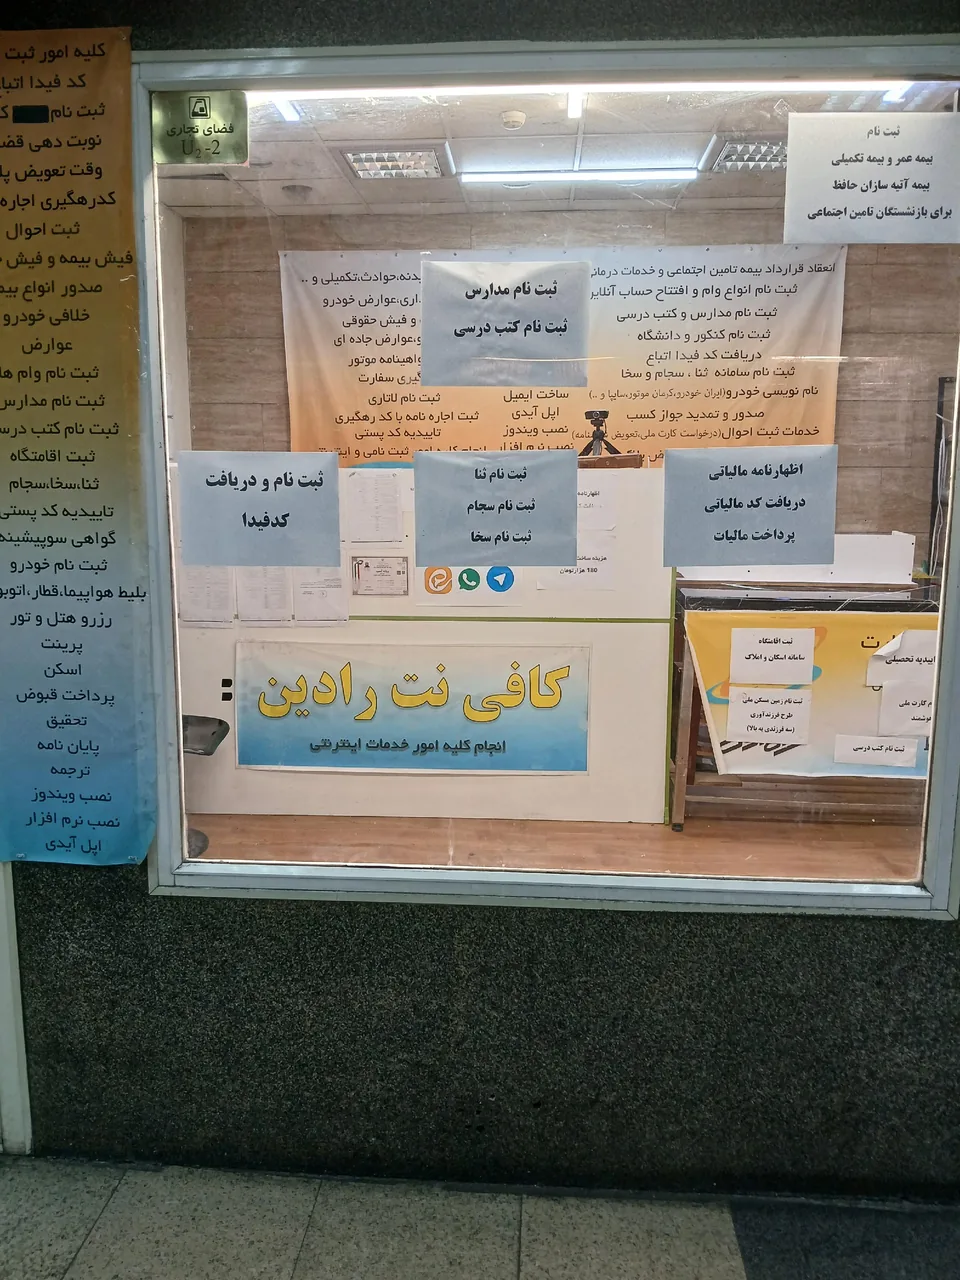 کلیه امور ثبت
کد فیدا
ثبت نام
نوبت دهی
وقت تعویض
کدرهگیری اجاره
ثبت احوال
فیش بیمه و فیش
صدور انواع
خلافی خودرو
عوارض
ثبت نام وام
ثبت نام مدارس
ثبت نام کتب
ثبت اقامتگاه
ثنا،سخا،سجام
تاییدیه کد پستی
گواهی سوپیشینه
ثبت نام خودرو
بلیط هواپیما،قطار
رزرو هتل و تور
پرینت
اسکن
پرداخت قبوض
تحقیق
پایان نامه
ترجمه
نصب ویندوز
نصب نرم افزار
اپل آیدی
فضای تجاری
U2-2
ثبت نام
بیمه عمر و بیمه تکمیلی
بیمه آتیه سازان حافظ
برای بازنشستگان تامین اجتماعی
انعقاد قرارداد بیمه تامین اجتماعی و خدمات
ثبت نام انواع وام و افتتاح حساب
ثبت نام مدارس و کتب درسی
ثبت نام کنکور و دانشگاه
دریافت کد فیدا اتباع
ثبت نام سامانه ثنا ، سجام و سخا
نام نویسی خودرو(ایران خودرو،کرمان موتور،سایپا و ..)
صدور و تمدید جواز کسب
خدمات ثبت احوال(درخواست کارت ملی،تعویض
حوادث،تکمیلی و ..
عوارض خودرو
و فیش حقوقی
عوارض جاده ای
موتور
سفارت
ثبت نام لاتاری
ثبت اجاره نامه با کد رهگیری
تاییدیه کد پستی
ساخت ایمیل
اپل آیدی
نصب ویندوز
نصب نرم افزار
ثبت نام مدارس
ثبت نام کتب درسی
ثبت نام و دریافت
کدفیدا
ثبت نام ثنا
ثبت نام سجام
ثبت نام سخا
اظهارنامه مالیاتی
دریافت کد مالیاتی
پرداخت مالیات
اظهارنامه
هزینه ساخت
180 هزارتومان
کافی نت رادین
انجام کلیه امور خدمات اینترنتی
ثبت اقامتگاه
سامانه اسکان و املاک
ثبت نام زمین مسکن ملی
طرح فرزندآوری
(سه فرزندی به بالا)
تحصیلی
کارت ملی
ثبت نام کتب درسی